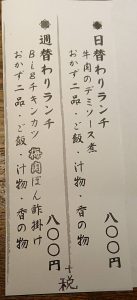 ◉日替わりランチ
牛肉のデミソース煮
おかず二品・ご飯・汁物・香の物
八〇〇円
◉週替わりランチ
Bigチキンカツ 梅肉ぽん酢掛け
おかず二品・ご飯・汁物・香の物
八〇〇円
+税